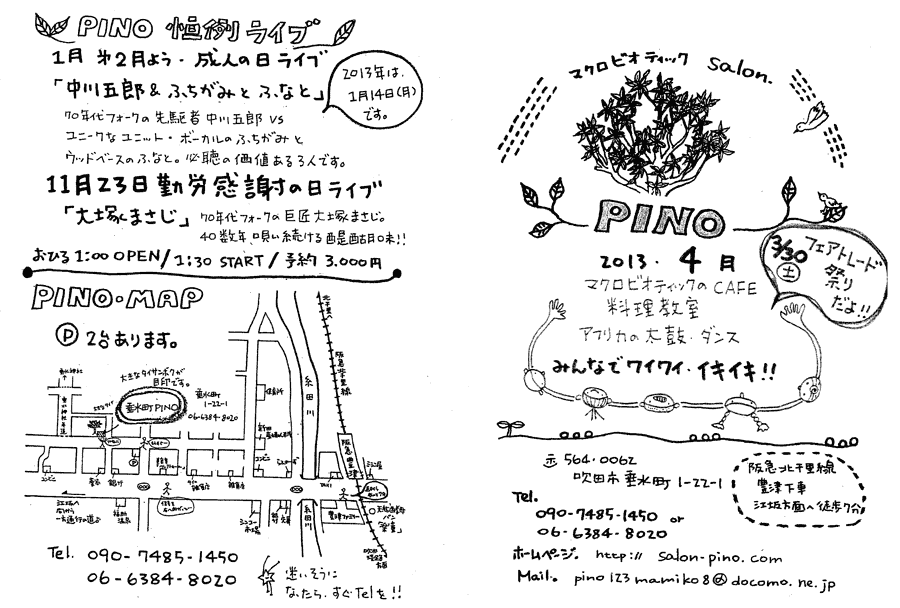 PINO 恒例ライブ
1月 第2月よう・成人の日ライブ
「中川五郎 & ふちがみとふなと」
2013年は、
1月14日(月)
です。
70年代フォークの先駆者 中川五郎 VS
ユニークなユニット・ボーカルのふちがみと
ウッドベースのふなと。必聴の価値ある3人です。
11月23日 勤労感謝の日ライブ
「大塚まさじ」
70年代フォークの巨匠 大塚まさじ。
40数年、唄い続ける醍醐味!!
おひる 1:00 OPEN / 1:30 START / 予約 3.000円
PINO・MAP
Ⓟ 2台あります。
大きなタイサンボクが
目印です。
垂水町PINO
垂水町
1-22-1
06-6384-8020
糸田川
阪急千里線
阪急豊津
コンビニ
Tel. 090-7485-1450
06-6384-8020
迷いそうに
なったら、すぐTelを!!
マクロビオティック Salon.
PINO
2013. 4月
3/30
土
フェアトレード
祭り
だよ!!
マクロビオティックのCAFE
料理教室
アフリカの太鼓・ダンス
みんなでワイワイ・イキイキ!!
〒564-0062
吹田市垂水町1-22-1
Tel.
090-7485-1450 or
06-6384-8020
阪急北千里線
豊津下車
江坂方面へ徒歩7分
ホームページ. http:// salon-pino.com
Mail. pino123mamiko8@docomo.ne.jp